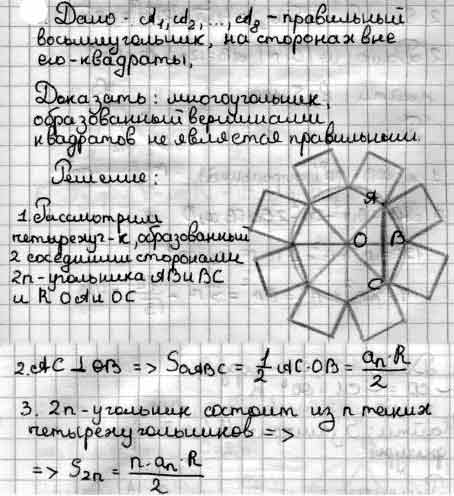 Дано - A₁, A₂, ..., A₈ - правильный
восьмиугольник, на сторонах вне
его - квадраты.
Доказать: многоугольник,
образованный вершинами
квадратов не является правильным.
Решение:
1. Рассмотрим
четырехуг-к, образованный
2 соседними сторонами
2n-угольника AB и BC
и R OA и OC
A
O
B
C
2. AC ⊥ OB => S_OABC = 1/2 AC·OB = aₙ·R/2
3. 2n-угольник состоит из n таких
четырехугольников =>
=> S₂ₙ = n·aₙ·R/2